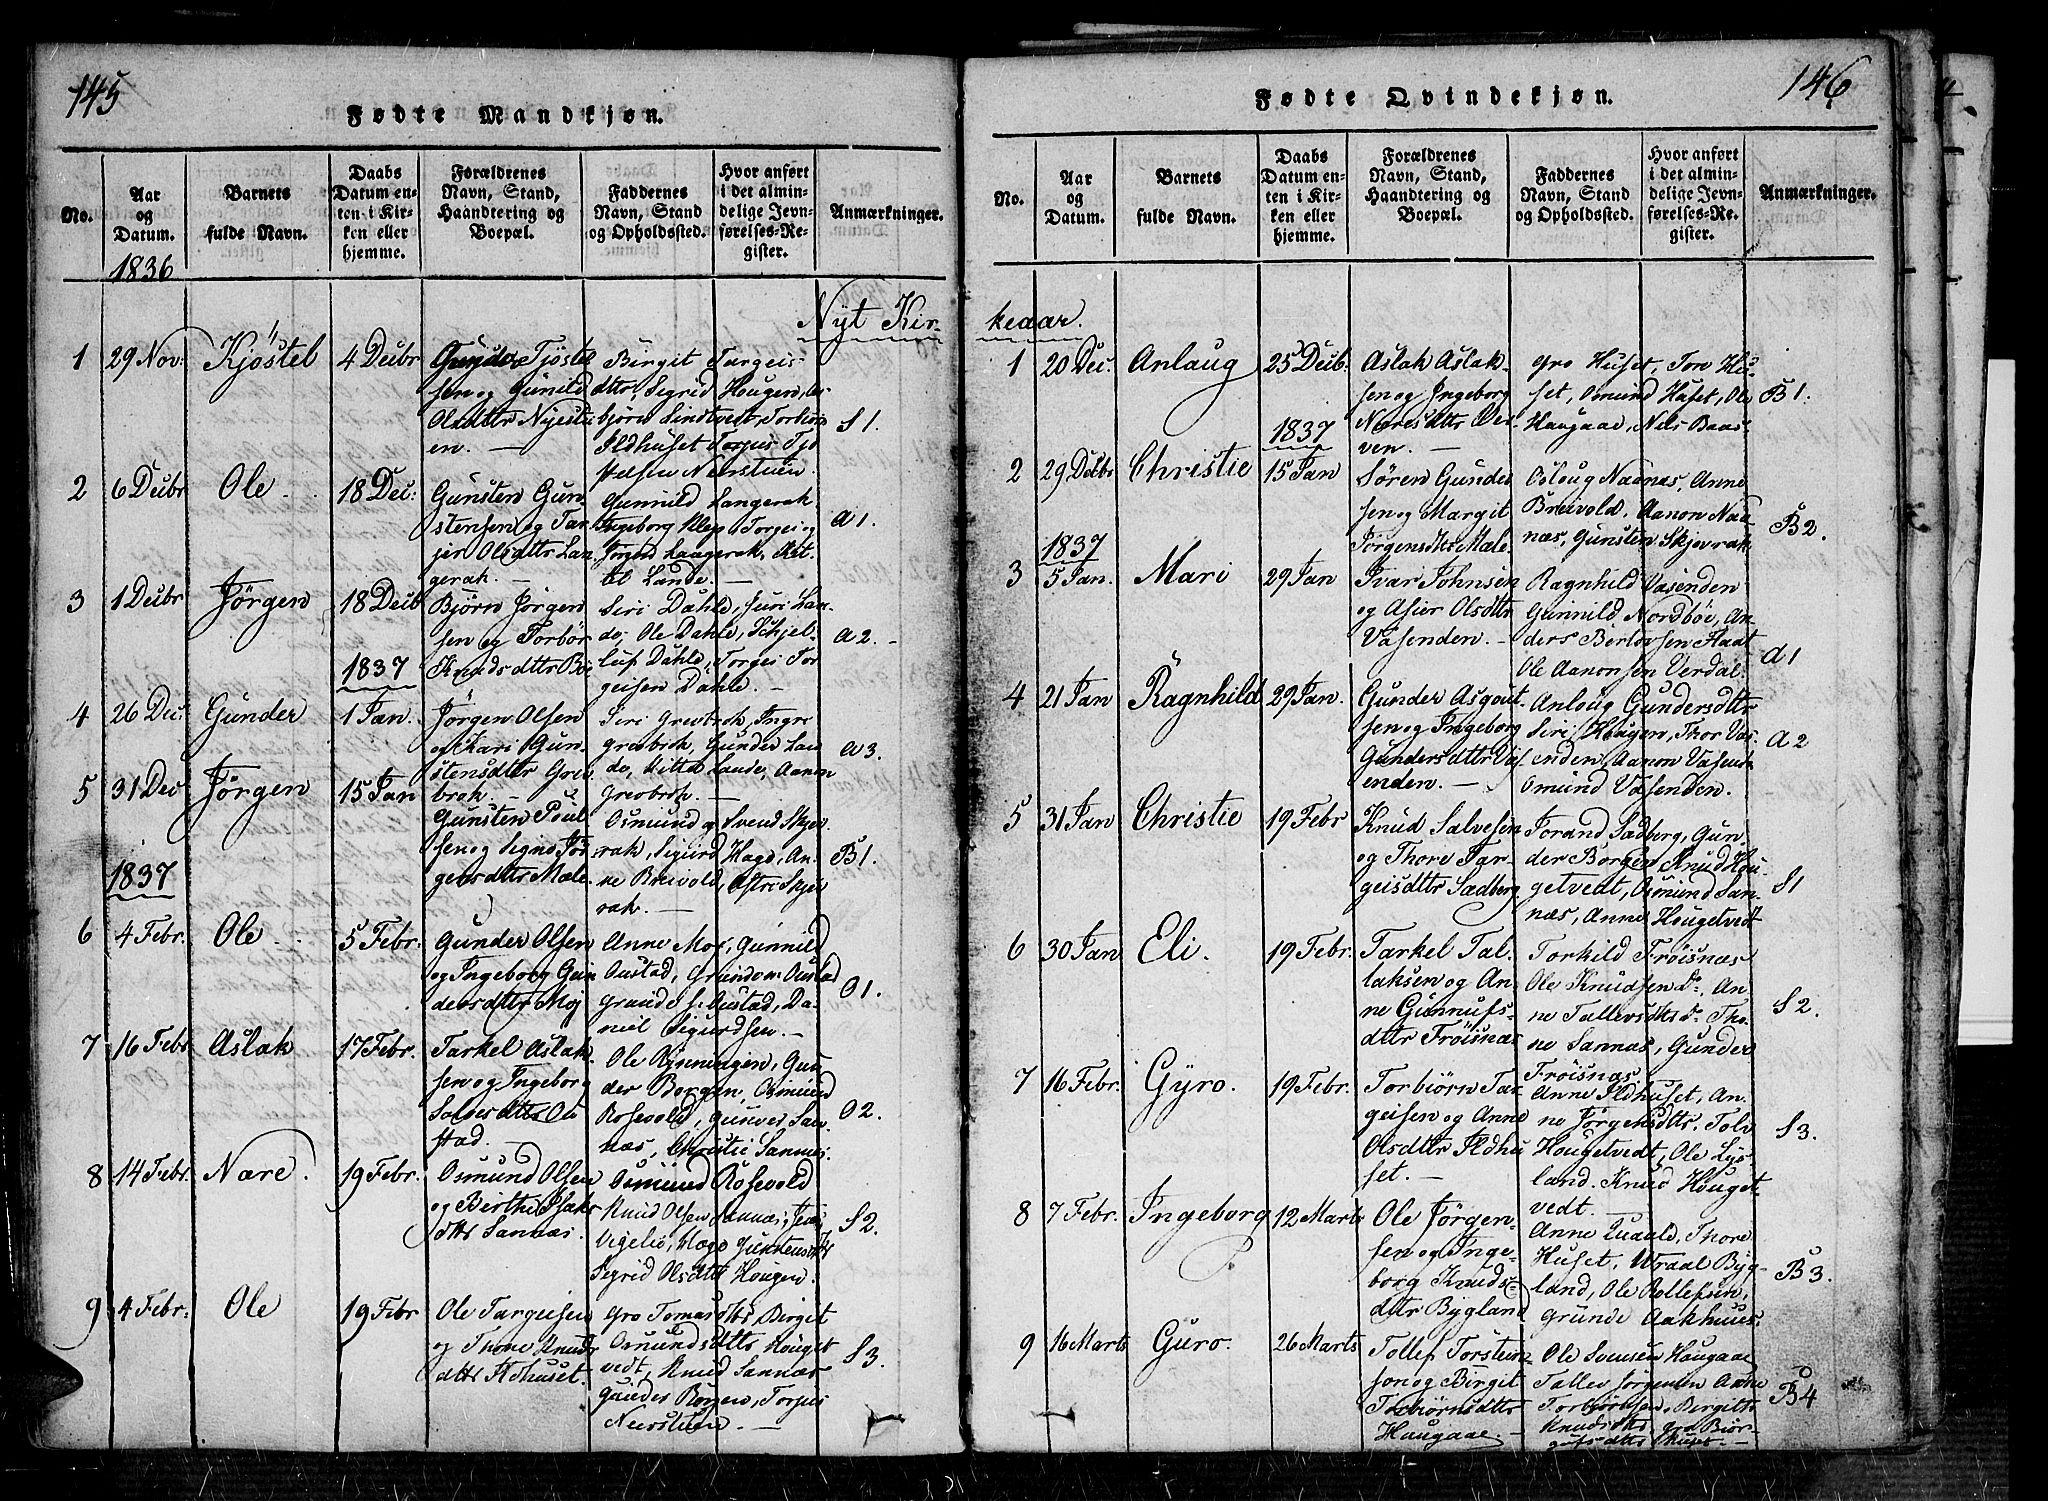 145
Fødte Mandkjøn.
No.
Aar
og
Datum.
Barnets
fulde Navn.
Daabs
Datum en-
ten i Kir-
ken eller
hjemme.
Forældrenes
Navn, Stand,
Haandtering og
Boepæl.
Faddernes
Navn, Stand
og Opholdssted.
Hvor anført
i det almin-
delige Jevn-
førelses-Re-
gister.
Anmærkninger.
1836
Nyt Kir-
1
29 Nov:
Kjöstel
4 Decbr
Tjöstel
sen og Gunild
Olsdttr Nyestu
en. —
Birgit Targeis-
dttr, Sigrid Hougen,
Torbiörn
Ildhuset Torjus
Neerstuen.
S1.
2
6 Decbr
Ole
18 Dec:
Gunsten Gun-
stensen og Tar-
jer Olsdttr Lan
gerak. —
Gunnild Langerak
Ingeborg Torgei og
Jörgen Langerak, Ket-
til Lande. —
A1.
3
1 Decbr
Jörgen
18 Decb
1837
Björn Jörgen
sen og Torbör
Knudsdttr
Siri Dahle, Juri Lan-
de, Ole Dahle, Schjel-
luf Dahle, Torgei Tor
geisen Dahle. —
A2. -
4
26 Dec:
Gunder
1 Jan.
Jörgen Olsen
og Kari Gun-
stensdttr Grei
brak. —
Siri Greibrok,
Greibrok, Gunder Lan
de, Lande, Aanon
Greibrok. —
A3.
5
31 Dec
Jörgen
15 Jan
Gunsten Poul
sen og Signe Jör
gensdttr Mæle.
Osmund og Svend Skjev
rak, Sigurd Hage, An-
ne Breivold, Skjev
rak. —
B1.
1837
6
4 Febr.
Ole
5 Febr.
Gunder Olsen
og Ingeborg Gun
dersdttr Moj
Anne Moj, Gunnild
Oustad, Oustad
Oustad, Da-
niel Sigurdsen. —
O1.
7
16 Febr
Aslak
17 Febr.
Tarkel Aslak-
sen og Ingeborg
Salvesdttr Ou
stad.
Ole Rynningen, Gun-
der Borgen, Osmund
Rosevold, Gunver San-
næs, Christie Sannæs.
O2.
8
14 Febr.
Nære.
19 Febr.
Osmund Olsen
og Birthe Isaks
dttr Sannæs.
Osmund Rosevold
Knud Olsen Sannæs,
Sigrid Olsdttr Hougen.
S2.
9
4 Febr.
Ole
19 Febr
Ole Targeisen
og Thone Knuds
dttr Ildhuset.
Gro Tomasdttr, Birgit
Osmundsdttr Houget
vedt, Knud Sannæs
Gunder Borgen, Torjus
Neerstuen —
S3.
146
Fødte Qvindekjøn.
No.
Aar
og
Datum.
Barnets
fulde Navn.
Daabs
Datum en-
ten i Kir-
ken eller
hjemme.
Forældrenes
Navn, Stand,
Haandtering og
Boepæl.
Faddernes
Navn, Stand
og Opholdssted.
Hvor anført
i det almin-
delige Jevn-
førelses-Re-
gister.
Anmærkninger.
keaar.
1
20 Dec:
Anlaug
25 Decb:
Aslak Aslak-
sen og Ingeborg
Næresdttr
ven. —
Gro Huset, Hu-
set, Osmund Huset, Ole
Haugaae, Nils Baas-
B1.
2
29 Decbr
Christie
1837
15 Jan
Sören Gunder
sen og Margit
Jörgensdttr Mæle.
Osloug Naanæs, Anne
Breivold, Aanon Naa
næs, Gunsten Skjevrak
B2.
1837
3
5 Jan.
Mari
29 Jan
Ivar Johnsen
og Asier Olsdttr
Vasenden. —
Ragnhild Vasenden
Gunnild Nordböe, An-
ders Flaat
Ole Aanonsen Verdal.
A1
4
21 Jan
Ragnhild
29 Jan.
Gunder Asgout-
sen og Ingeborg
Gundersdttr Vas
enden. —
Anloug Gundersdttr
Siri Hougen, Thor Vas-
enden Aanon Vasend
Omund Vasenden.
A2
5
31 Jan
Christie
19 Febr
Knud Salvesen
og Thore Tar-
geisdttr Sædberg
Jorand Sædberg, Gun-
der Borgen, Knud Hou-
getvedt, Osmund San-
næs, Anne Hougetvedt
S1
6
30 Jan
Eli.
19 Febr.
Tarkel Tal-
laksen og An-
ne Gunnufs-
dttr Fröisnæs
Torkild Fröisnæs
Ole Knudsen Do. An-
ne Tallevsdttr Do. Tho-
ne Sannæs, Gunder
Fröisnæs
S2.
7
16 Febr.
Gyro.
19 Febr.
Torbiörn Tar-
geisen og Anne
Olsdttr Ildhu
set. —
Anne Ildhuset, An-
ne Jörgensdttr, Tolv
Hougetvedt, Ole Lys-
land. Knud Houget-
vedt. —
S3.
8
7 Febr.
Ingeborg
12 Marts
Ole Jörgen-
sen og Inge-
borg Knuds-
dttr Bygland
Anne Quaale, Thore
Huset, Wraal Byg-
land, Ole Rollefsen,
Grunde Aakhuus.
B3.
9
16 Marts
Guro.
26 Marts
Tollef Torstein-
son og Birgit
Torbiörnsdttr
Haugaae. —
Ole Svensen Haugaae
Tallev Jörgensen Aakne
Torbiörnsen, Birgitte
Knudsdttr, Gro Biör-
gufsdttr Huset. —
B4